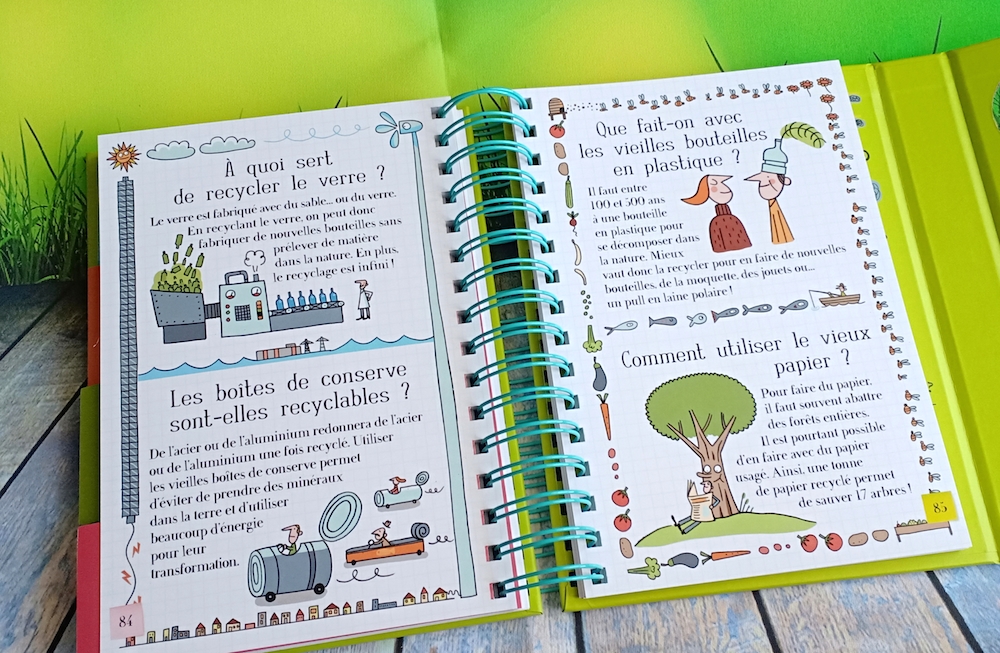 À quoi sert
de recycler le verre ?
Le verre est fabriqué avec du sable... ou du verre.
En recyclant le verre, on peut donc
fabriquer de nouvelles bouteilles sans
prélever de matière
dans la nature. En plus,
le recyclage est infini !
Les boîtes de conserve
sont-elles recyclables ?
De l'acier ou de l'aluminium redonnera de l'acier
ou de l'aluminium une fois recyclé. Utiliser
les vieilles boîtes de conserve permet
d'éviter de prendre des minéraux
dans la terre et d'utiliser
beaucoup d'énergie
pour leur
transformation.
84
Que fait-on avec
les vieilles bouteilles
en plastique ?
Il faut entre
100 et 500 ans
à une bouteille
en plastique pour
se décomposer dans
la nature. Mieux
vaut donc la recycler pour en faire de nouvelles
bouteilles, de la moquette, des jouets ou...
un pull en laine polaire !
Comment utiliser le vieux
papier ?
Pour faire du papier,
il faut souvent abattre
des forêts entières.
Il est pourtant possible
d'en faire avec du papier
usagé. Ainsi, une tonne
de papier recyclé permet
de sauver 17 arbres !
85